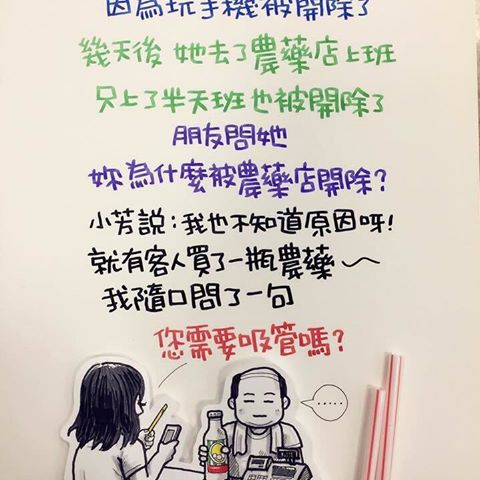 因為玩手機被開除了
幾天後 她去了農藥店上班
只上了半天班也被開除了
朋友問她
妳為什麼被農藥店開除?
小芳說:我也不知道原因呀!
就有客人買了一瓶農藥～
我隨口問了一句
您需要吸管嗎?
……